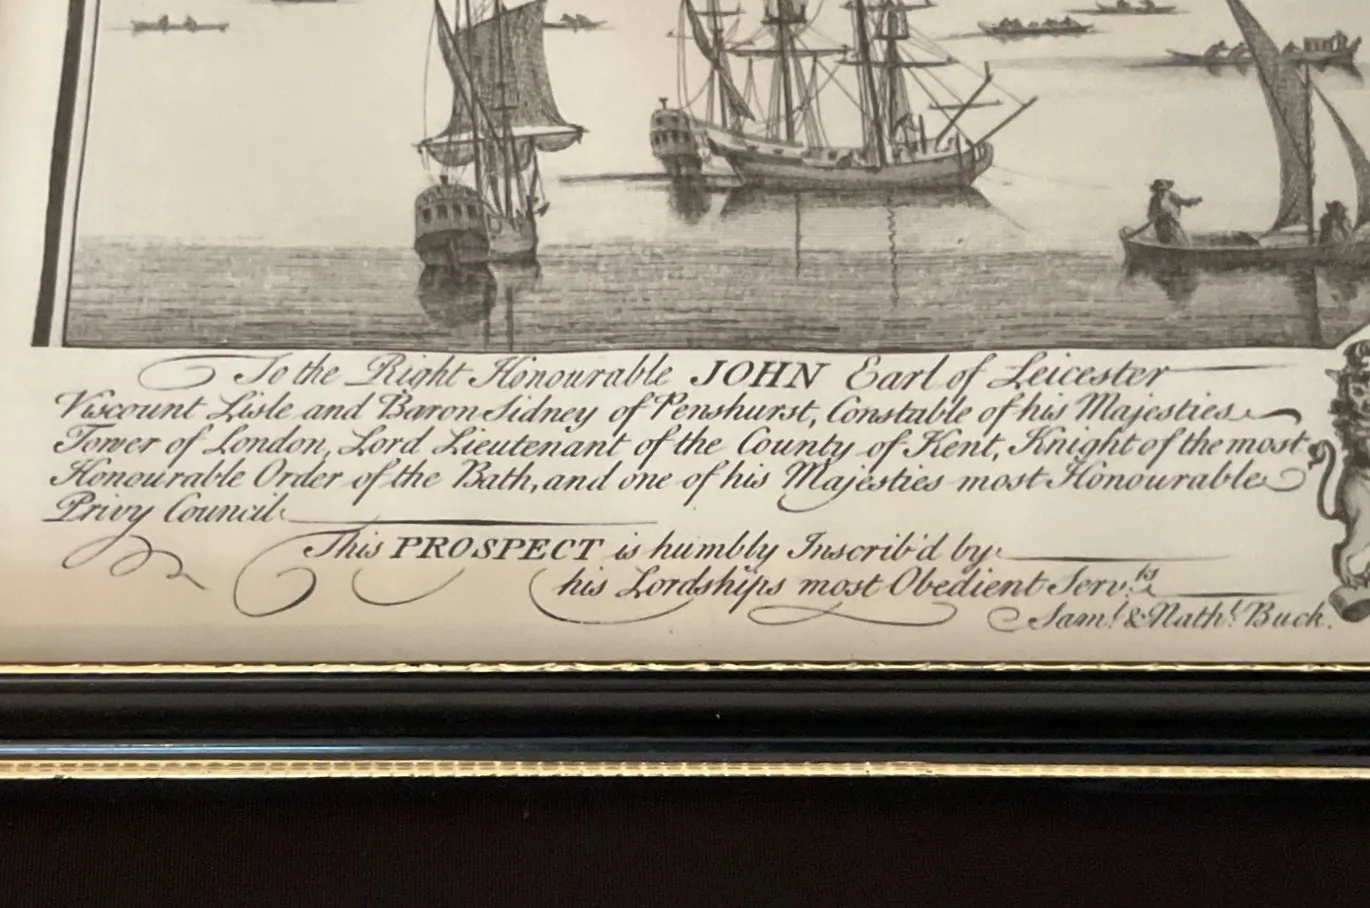 To the Right Honourable JOHN Earl of Leicester
Viscount Lisle and Baron Sidney of Penshurst, Constable of his Majesties
Tower of London, Lord Lieutenant of the County of Kent, Knight of the most
Honourable Order of the Bath, and one of his Majesties most Honourable
Privy Council.
This PROSPECT is humbly Inscrib'd by
his Lordships most Obedient Serv.ts
Sam.l & Nath.l Buck.